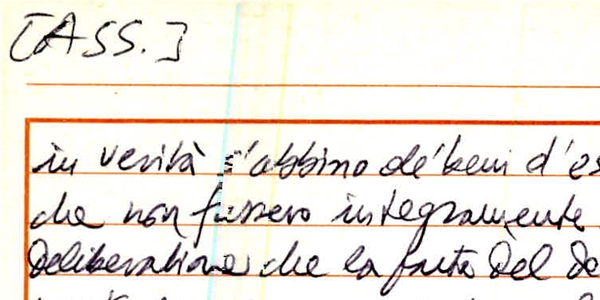 [ASS.]
in verità s'abbino de' beni d'es
che non fussero integramente
Deliberatione che la parte del de